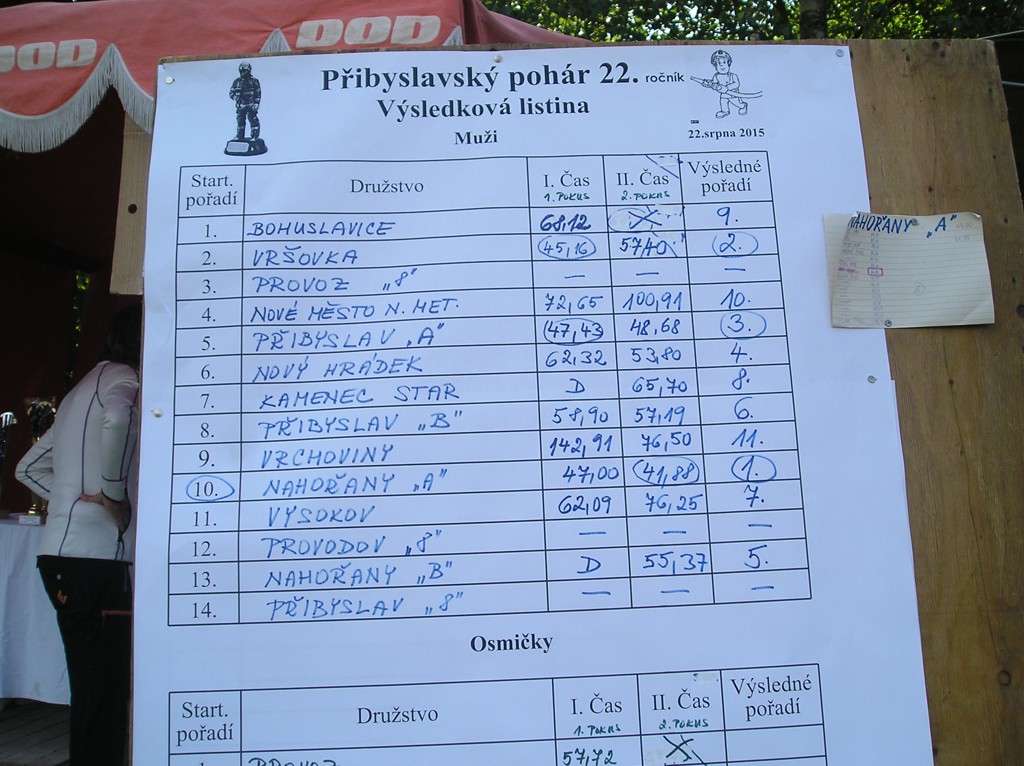 DOD DOD
Přibyslavský pohár 22. ročník
Výsledková listina
Muži
22.srpna 2015
Start. pořadí Družstvo I. Čas 1. POKUS II. Čas 2. POKUS Výsledné pořadí
1. BOHUSLAVICE 68,12 X 9.
2. VRŠOVKA 45,16 57,40 2.
3. PROVOZ „8" — — —
4. NOVÉ MĚSTO N. MET. 72,65 100,91 10.
5. PŘIBYSLAV „A" 47,43 48,68 3.
6. NOVÝ HRÁDEK 62,32 53,80 4.
7. KAMENEC STAR D 65,70 8.
8. PŘIBYSLAV „B" 58,90 57,19 6.
9. VRCHOVINY 142,91 76,50 11.
10. NAHOŘANY „A" 47,00 41,88 1.
11. VYSOKOV 62,09 76,25 7.
12. PROVODOV „8" — — —
13. NAHOŘANY „B" D 55,37 5.
14. PŘIBYSLAV „8" — — —
Osmičky
Start. pořadí Družstvo I. Čas 1. POKUS II. Čas 2. POKUS Výsledné pořadí
1. PROVOZ 57,72 X
NAHOŘANY „A"